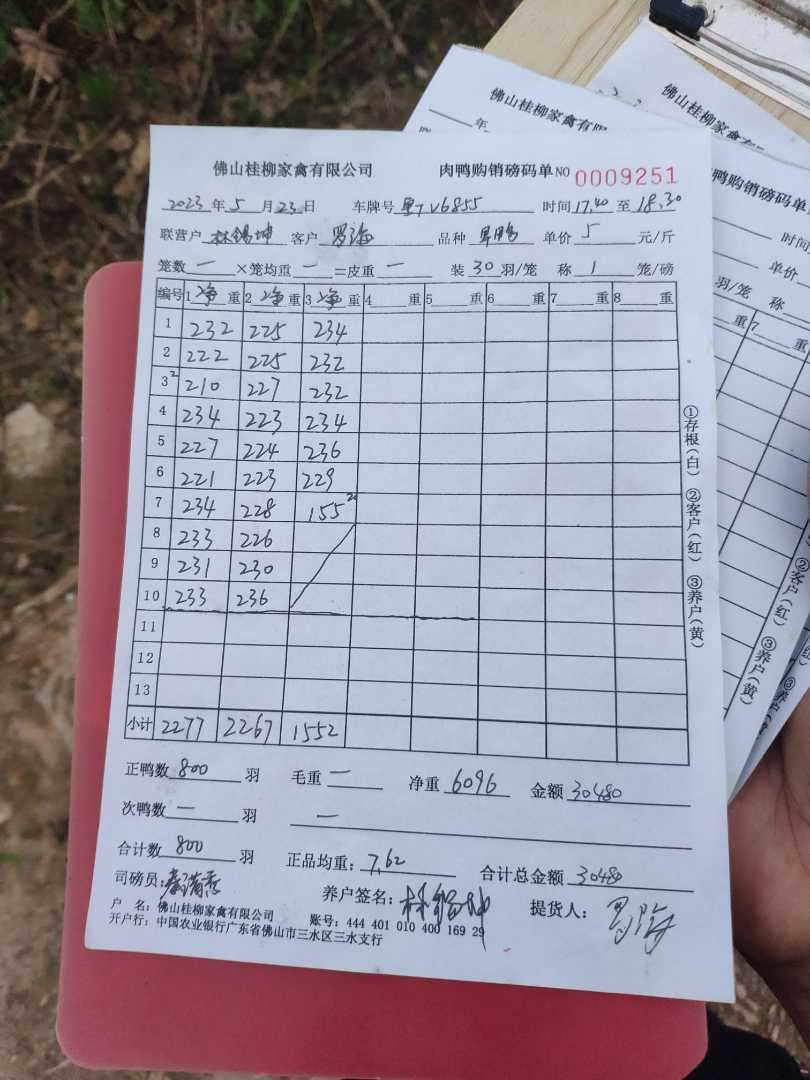 佛山桂柳家禽有限公司 肉鸭购销磅码单 NO 0009251
2023 年 5 月 23 日 车牌号 粤TV6855 时间 17.40 至 18.30
联营户 林锡坤 客户 罗海 品种 单价 5 元/斤
笼数 一 ×笼均重 一 =皮重 一 装 30 羽/笼 称 1 笼/磅
编号 1 净 重 2 净 重 3 净 重 4 重 5 重 6 重 7 重 8 重
1 232 225 234
2 222 225 232
3 2 210 227 232
4 234 223 234
5 227 224 236
6 221 223 229
7 234 228 155 20
8 233 226
9 231 230
10 233 236
11
12
13
小计 2277 2267 1552
正鸭数 800 羽 毛重 一 净重 6096 金额 30480
次鸭数 一 羽 一
合计数 800 羽 正品均重: 7.62 合计总金额 30480
司磅员: 养户签名: 林锡坤 提货人: 罗海
户 名: 佛山桂柳家禽有限公司 账号: 444 401 010 400 169 29
开户行: 中国农业银行广东省佛山市三水区三水支行
①存根(白) ②客户(红) ③养户(黄)
佛山桂柳家禽有限
年
佛山桂柳家禽有限
鸭购销磅码单
时间
单价
羽/笼 称
重 7 重
②客户(红) ③养户(黄)